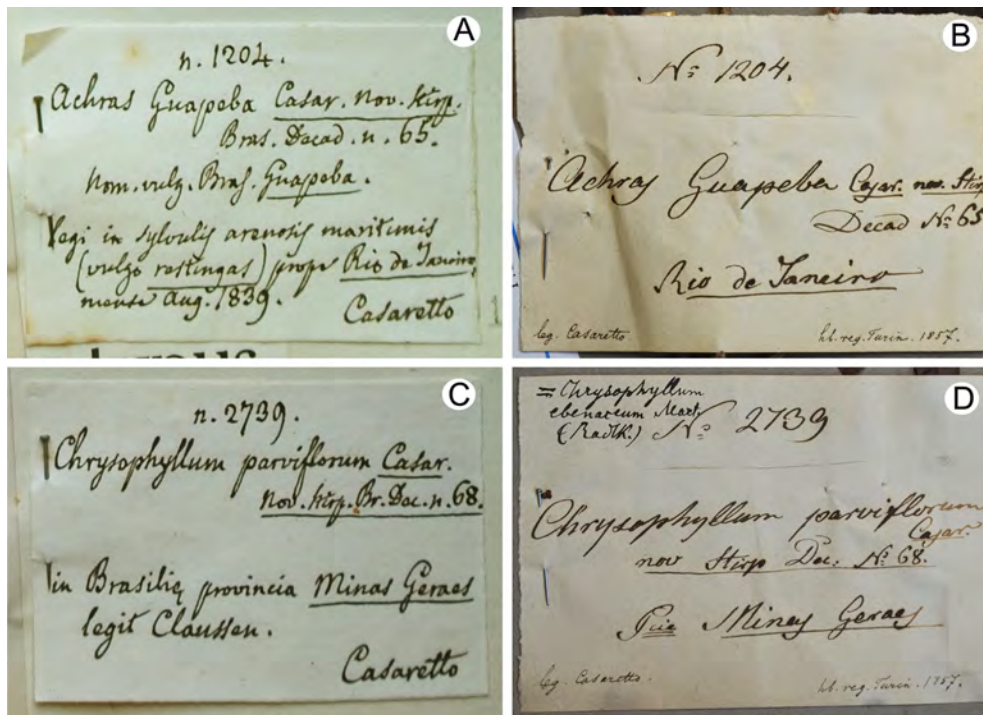 A
n. 1204.
Achras Guapeba Casar. Nov. Stirp.
Bras. Decad. n. 65.
Nom. vulg. Bras. Guapeba.
Legi in sylvulis arenosis maritimis
(vulgo restingas) prope Rio de Janeiro,
mense Aug. 1839.
Casaretto
B
Nº 1204.
Achras Guapeba Casar. nov. Stirp
Decad Nº 65
Rio de Janeiro
leg. Casaretto.
hb. reg. Turin. 1857.
C
n. 2739.
Chrysophyllum parviflorum Casar.
Nov. Stirp. Br. Dec. n. 68.
in Brasilię provincia Minas Geraes
legit Claussen.
Casaretto
D
= Chrysophyllum
ebenaceum Mart.
(Radlk.) Nº 2739
Chrysophyllum parviflorum
Casar.
nov Stirp Dec. Nº 68.
Minas Geraes
leg. Casaretto.
hb. reg. Turin. 1857.